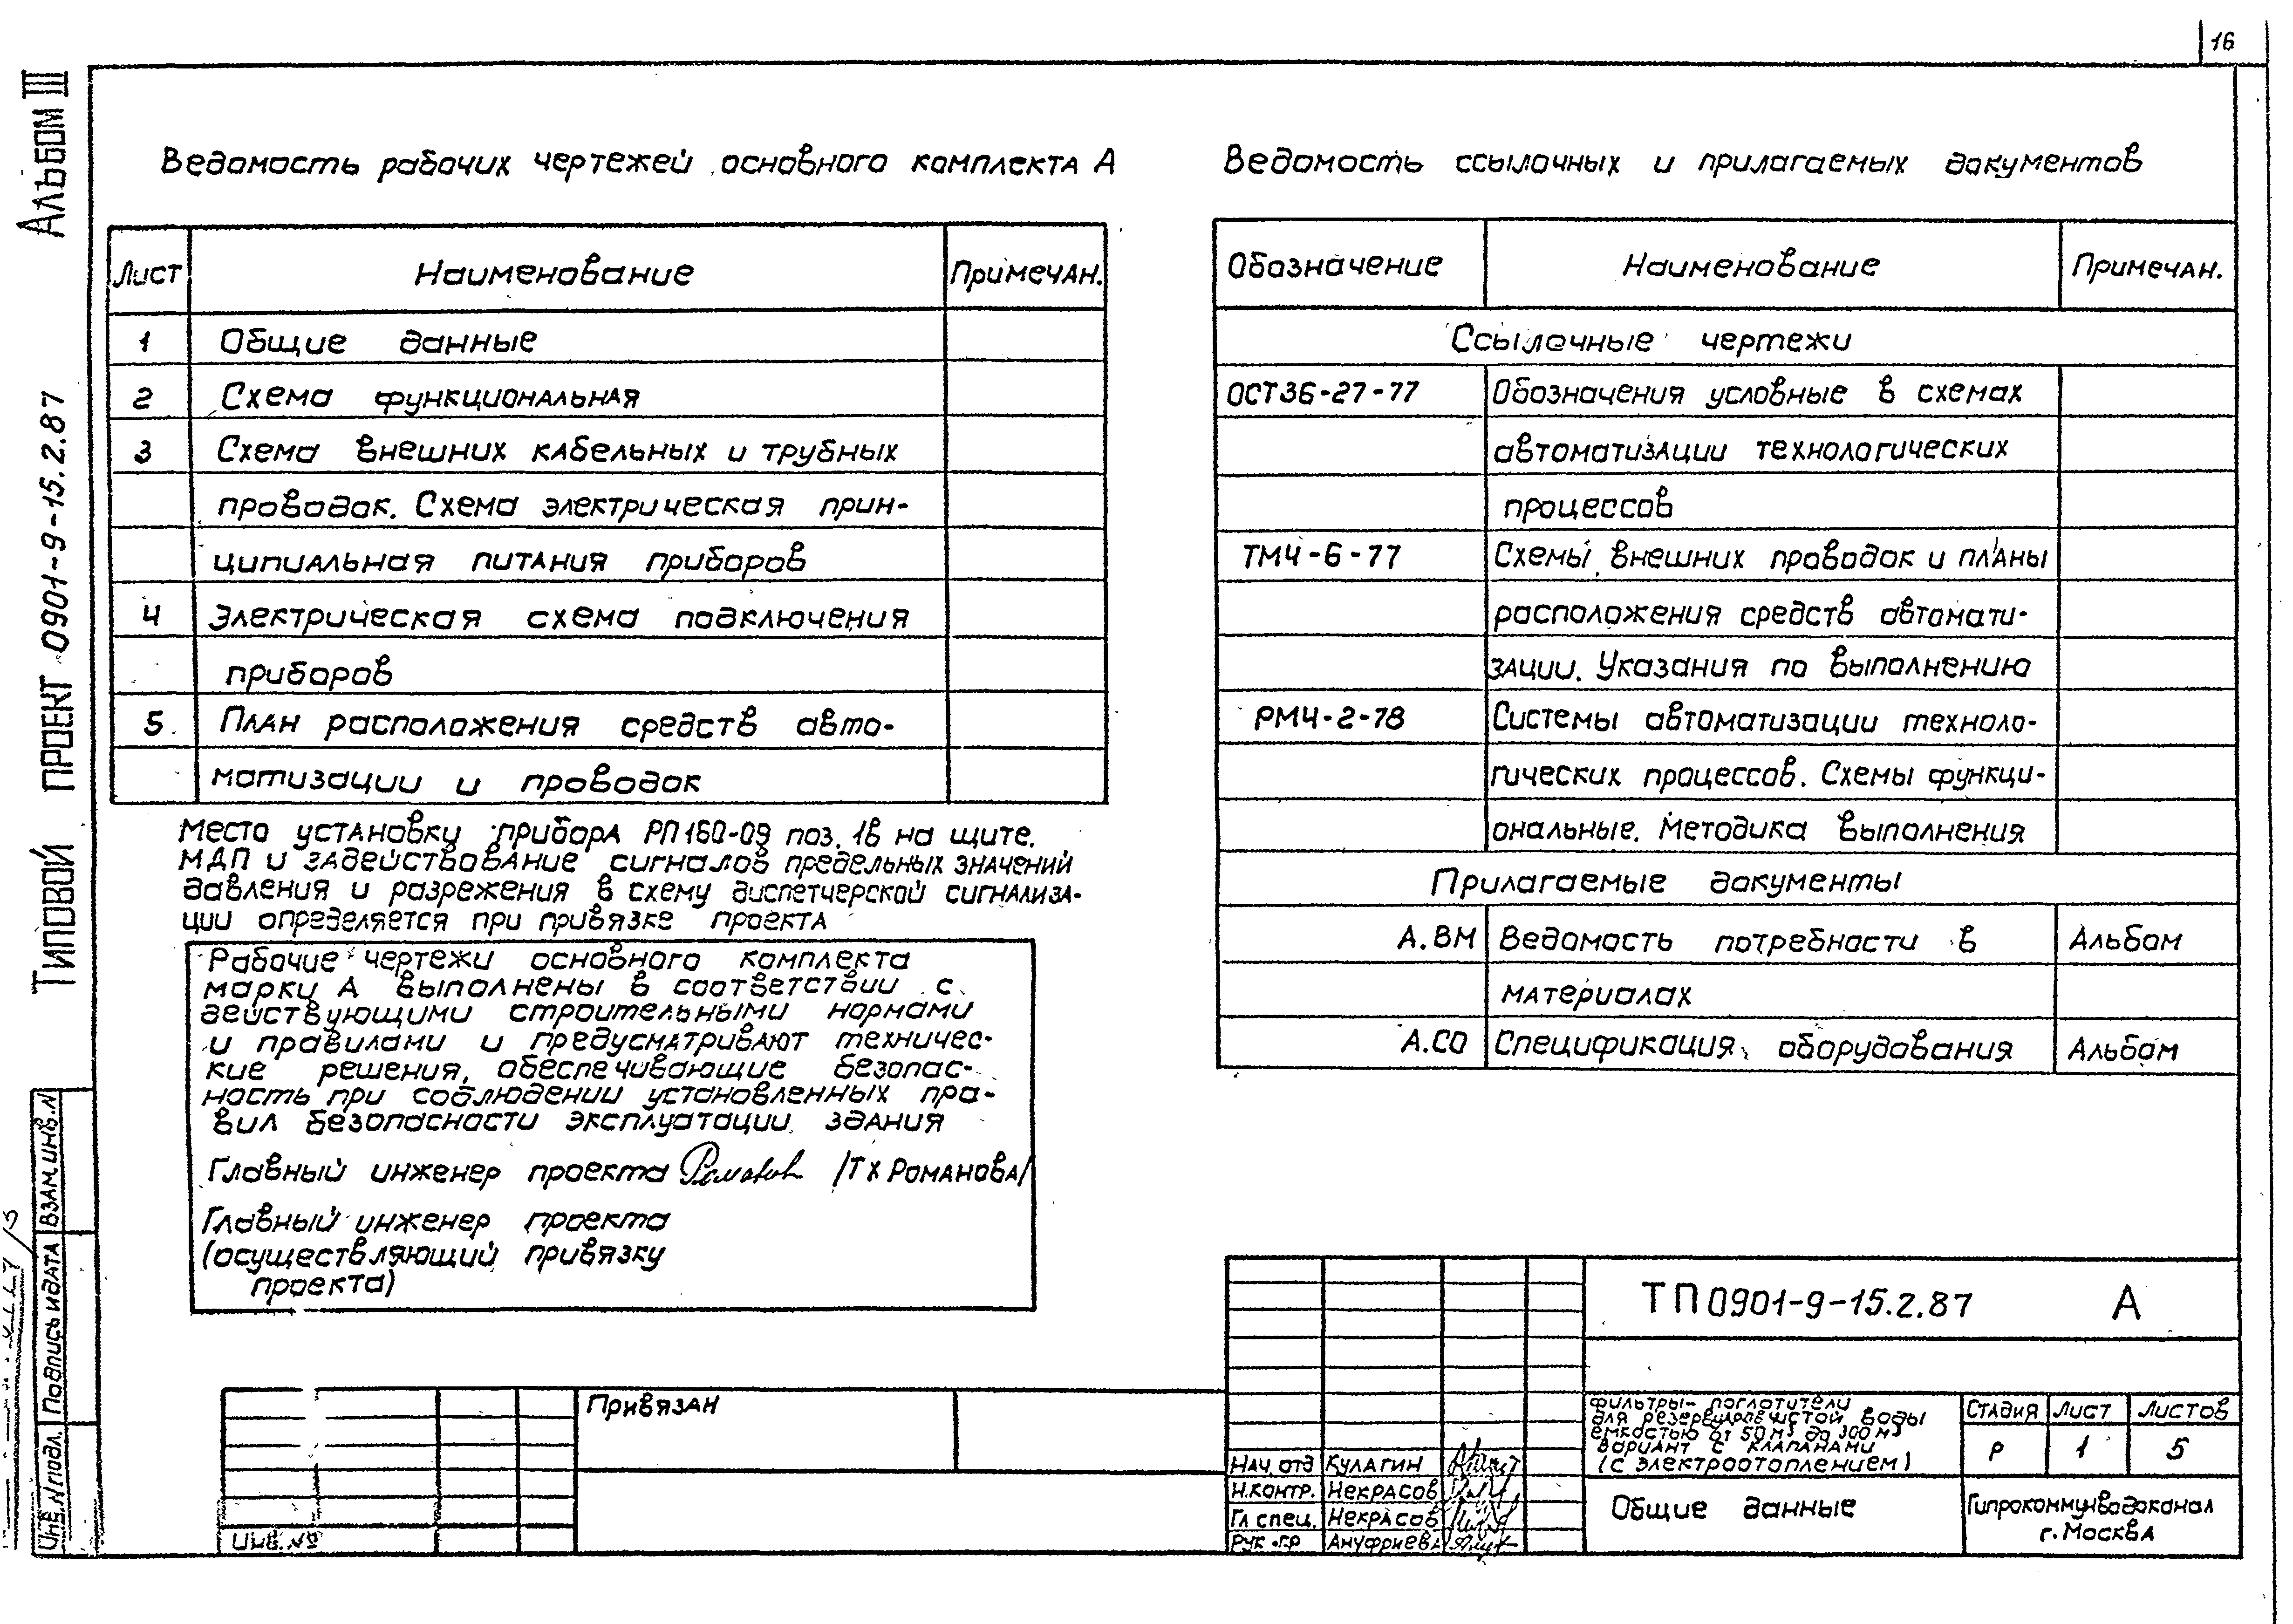 16
Альбом III
Типовой проект 0901-9-15.2.87
Ведомость рабочих чертежей основного комплекта А
Лист Наименование Примечан.
1 Общие данные
2 Схема функциональная
3 Схема внешних кабельных и трубных
проводок. Схема электрическая прин-
ципиальная питания приборов
4 Электрическая схема подключения
приборов
5 План расположения средств авто-
матизации и проводок
Место установку прибора РП160-09 поз. 1в на щите.
МДП и задействование сигналов предельных значений
давления и разрежения в схему диспетчерской сигнализа-
ции определяется при привязке проекта
Рабочие чертежи основного комплекта
марки А выполнены в соответствии с
действующими строительными нормами
и правилами и предусматривают техничес-
кие решения, обеспечивающие безопас-
ность при соблюдении установленных пра-
вил безопасности эксплуатации здания
Главный инженер проекта /Т Х Романова/
Главный инженер проекта
(осуществляющий привязку
проекта)
Ведомость ссылочных и прилагаемых документов
Обозначение Наименование Примечан.
Ссылочные чертежи
ОСТ36-27-77 Обозначения условные в схемах
автоматизации технологических
процессов
ТМ4-6-77 Схемы внешних проводок и планы
расположения средств автомати-
зации. Указания по выполнению
РМ4-2-78 Системы автоматизации техноло-
гических процессов. Схемы функци-
ональные. Методика выполнения
Прилагаемые документы
А.ВМ Ведомость потребности в Альбом
материалах
А.СО Спецификация оборудования Альбом
Взам.инв.N
Подпись и дата
Инв.N подл.
Привязан
Инв. №
ТП 0901-9-15.2.87 А
Фильтры-поглотители
для резервуаров чистой воды
емкостью от 50 м³ до 300 м³
Вариант с клапанами
(с электроотоплением)
Стадия Лист Листов
Р 1 5
Нач. отд Кулагин
Н.контр. Некрасов
Гл спец. Некрасов
Рук.гр Ануфриева
Общие данные
Гипрокоммунводоканал
г. Москва